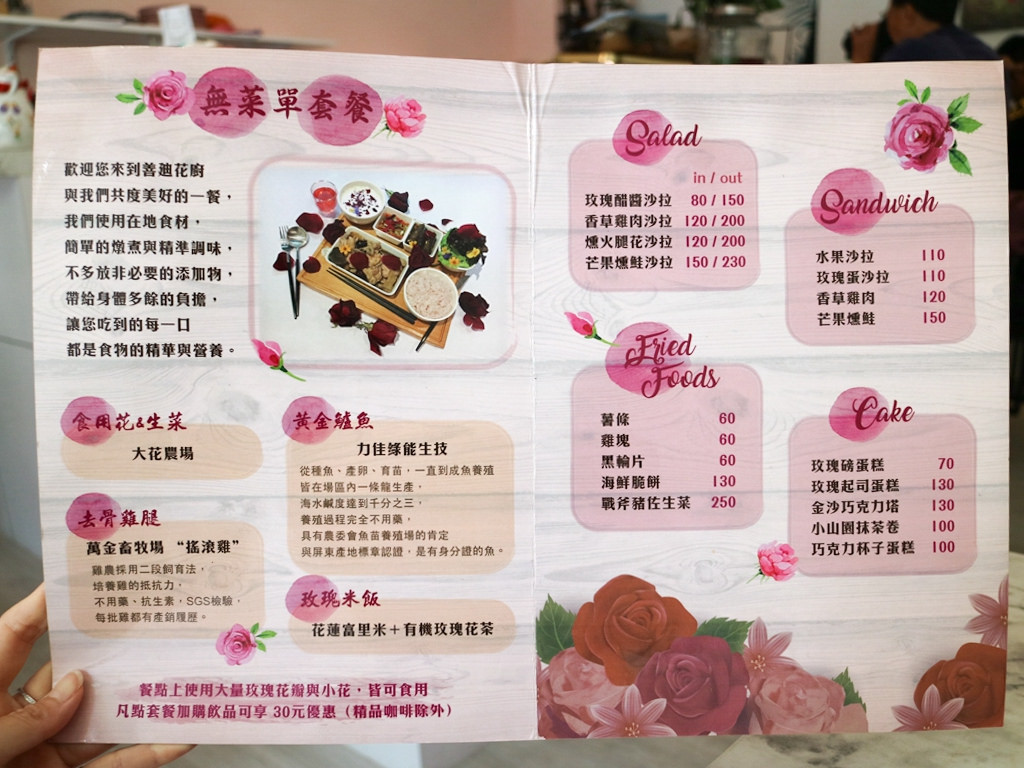 無菜單套餐
歡迎您來到善迪花廚
與我們共度美好的一餐，
我們使用在地食材，
簡單的燉煮與精準調味，
不多放非必要的添加物，
帶給身體多餘的負擔，
讓您吃到的每一口
都是食物的精華與營養。
食用花&生菜
大花農場
去骨雞腿
萬金畜牧場 “搖滾雞”
雞農採用二段飼育法，
培養雞的抵抗力，
不用藥、抗生素，SGS檢驗，
每批雞都有產銷履歷。
黃金鱸魚
力佳綠能生技
從種魚、產卵、育苗，一直到成魚養殖
皆在場區內一條龍生產，
海水鹹度達到千分之三，
養殖過程完全不用藥，
具有農委會魚苗養殖場的肯定
與屏東產地標章認證，是有身分證的魚。
玫瑰米飯
花蓮富里米＋有機玫瑰花茶
餐點上使用大量玫瑰花瓣與小花，皆可食用
凡點套餐加購飲品可享 30元優惠（精品咖啡除外）
Salad
in / out
玫瑰醋醬沙拉 80 / 150
香草雞肉沙拉 120 / 200
燻火腿花沙拉 120 / 200
芒果燻鮭沙拉 150 / 230
Fried
Foods
薯條 60
雞塊 60
黑輪片 60
海鮮脆餅 130
戰斧豬佐生菜 250
Sandwich
水果沙拉 110
玫瑰蛋沙拉 110
香草雞肉 120
芒果燻鮭 150
Cake
玫瑰磅蛋糕 70
玫瑰起司蛋糕 130
金沙巧克力塔 130
小山園抹茶卷 100
巧克力杯子蛋糕 100